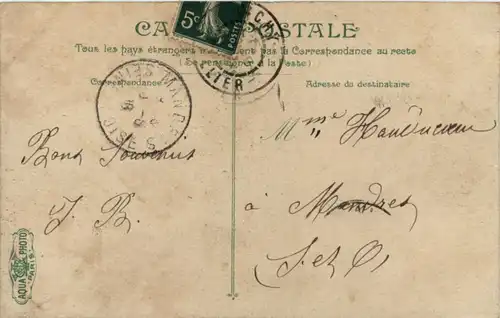 CARTE POSTALE
Tous les pays étrangers n'acceptent pas la Correspondance au recto
(Se renseigner à la Poste)
Correspondance
Adresse du destinataire
5c
POSTES
MANDRES
Bons Souvenirs
J. B.
Mme
à Mandres
S et O
AQUA PHOTO
PARIS